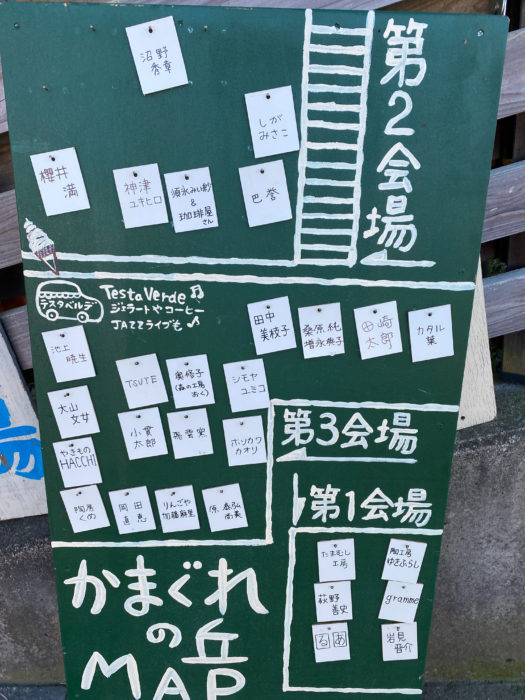 第2会場
沼野
秀章
しが
みさこ
櫻井
満
神津
ユキヒロ
須永みい紗
&
珈琲屋
さん
巴 誉
テスタベルデ
Testa Verde♫
ジェラートやコーヒー
JAZZライブも♪
田中
美枝子
桑原 純
増永典子
田崎
太郎
カタル
葉
池上
暁生
TSUTE
奥修子
(森の工房
おく)
シモヤ
ユミコ
大山
文女
小貫
太郎
ホソカワ
カオリ
やきもの
HACCHI
陶房
くめ
岡田
直恵
りんごや
加藤麻里
原 泰弘
尚美
第3会場
第1会場
たまむし
工房
陶工房
ゆきぶらし
萩野
善史
gramme
るあ
岩見
晋介
かまぐれ
の丘
MAP